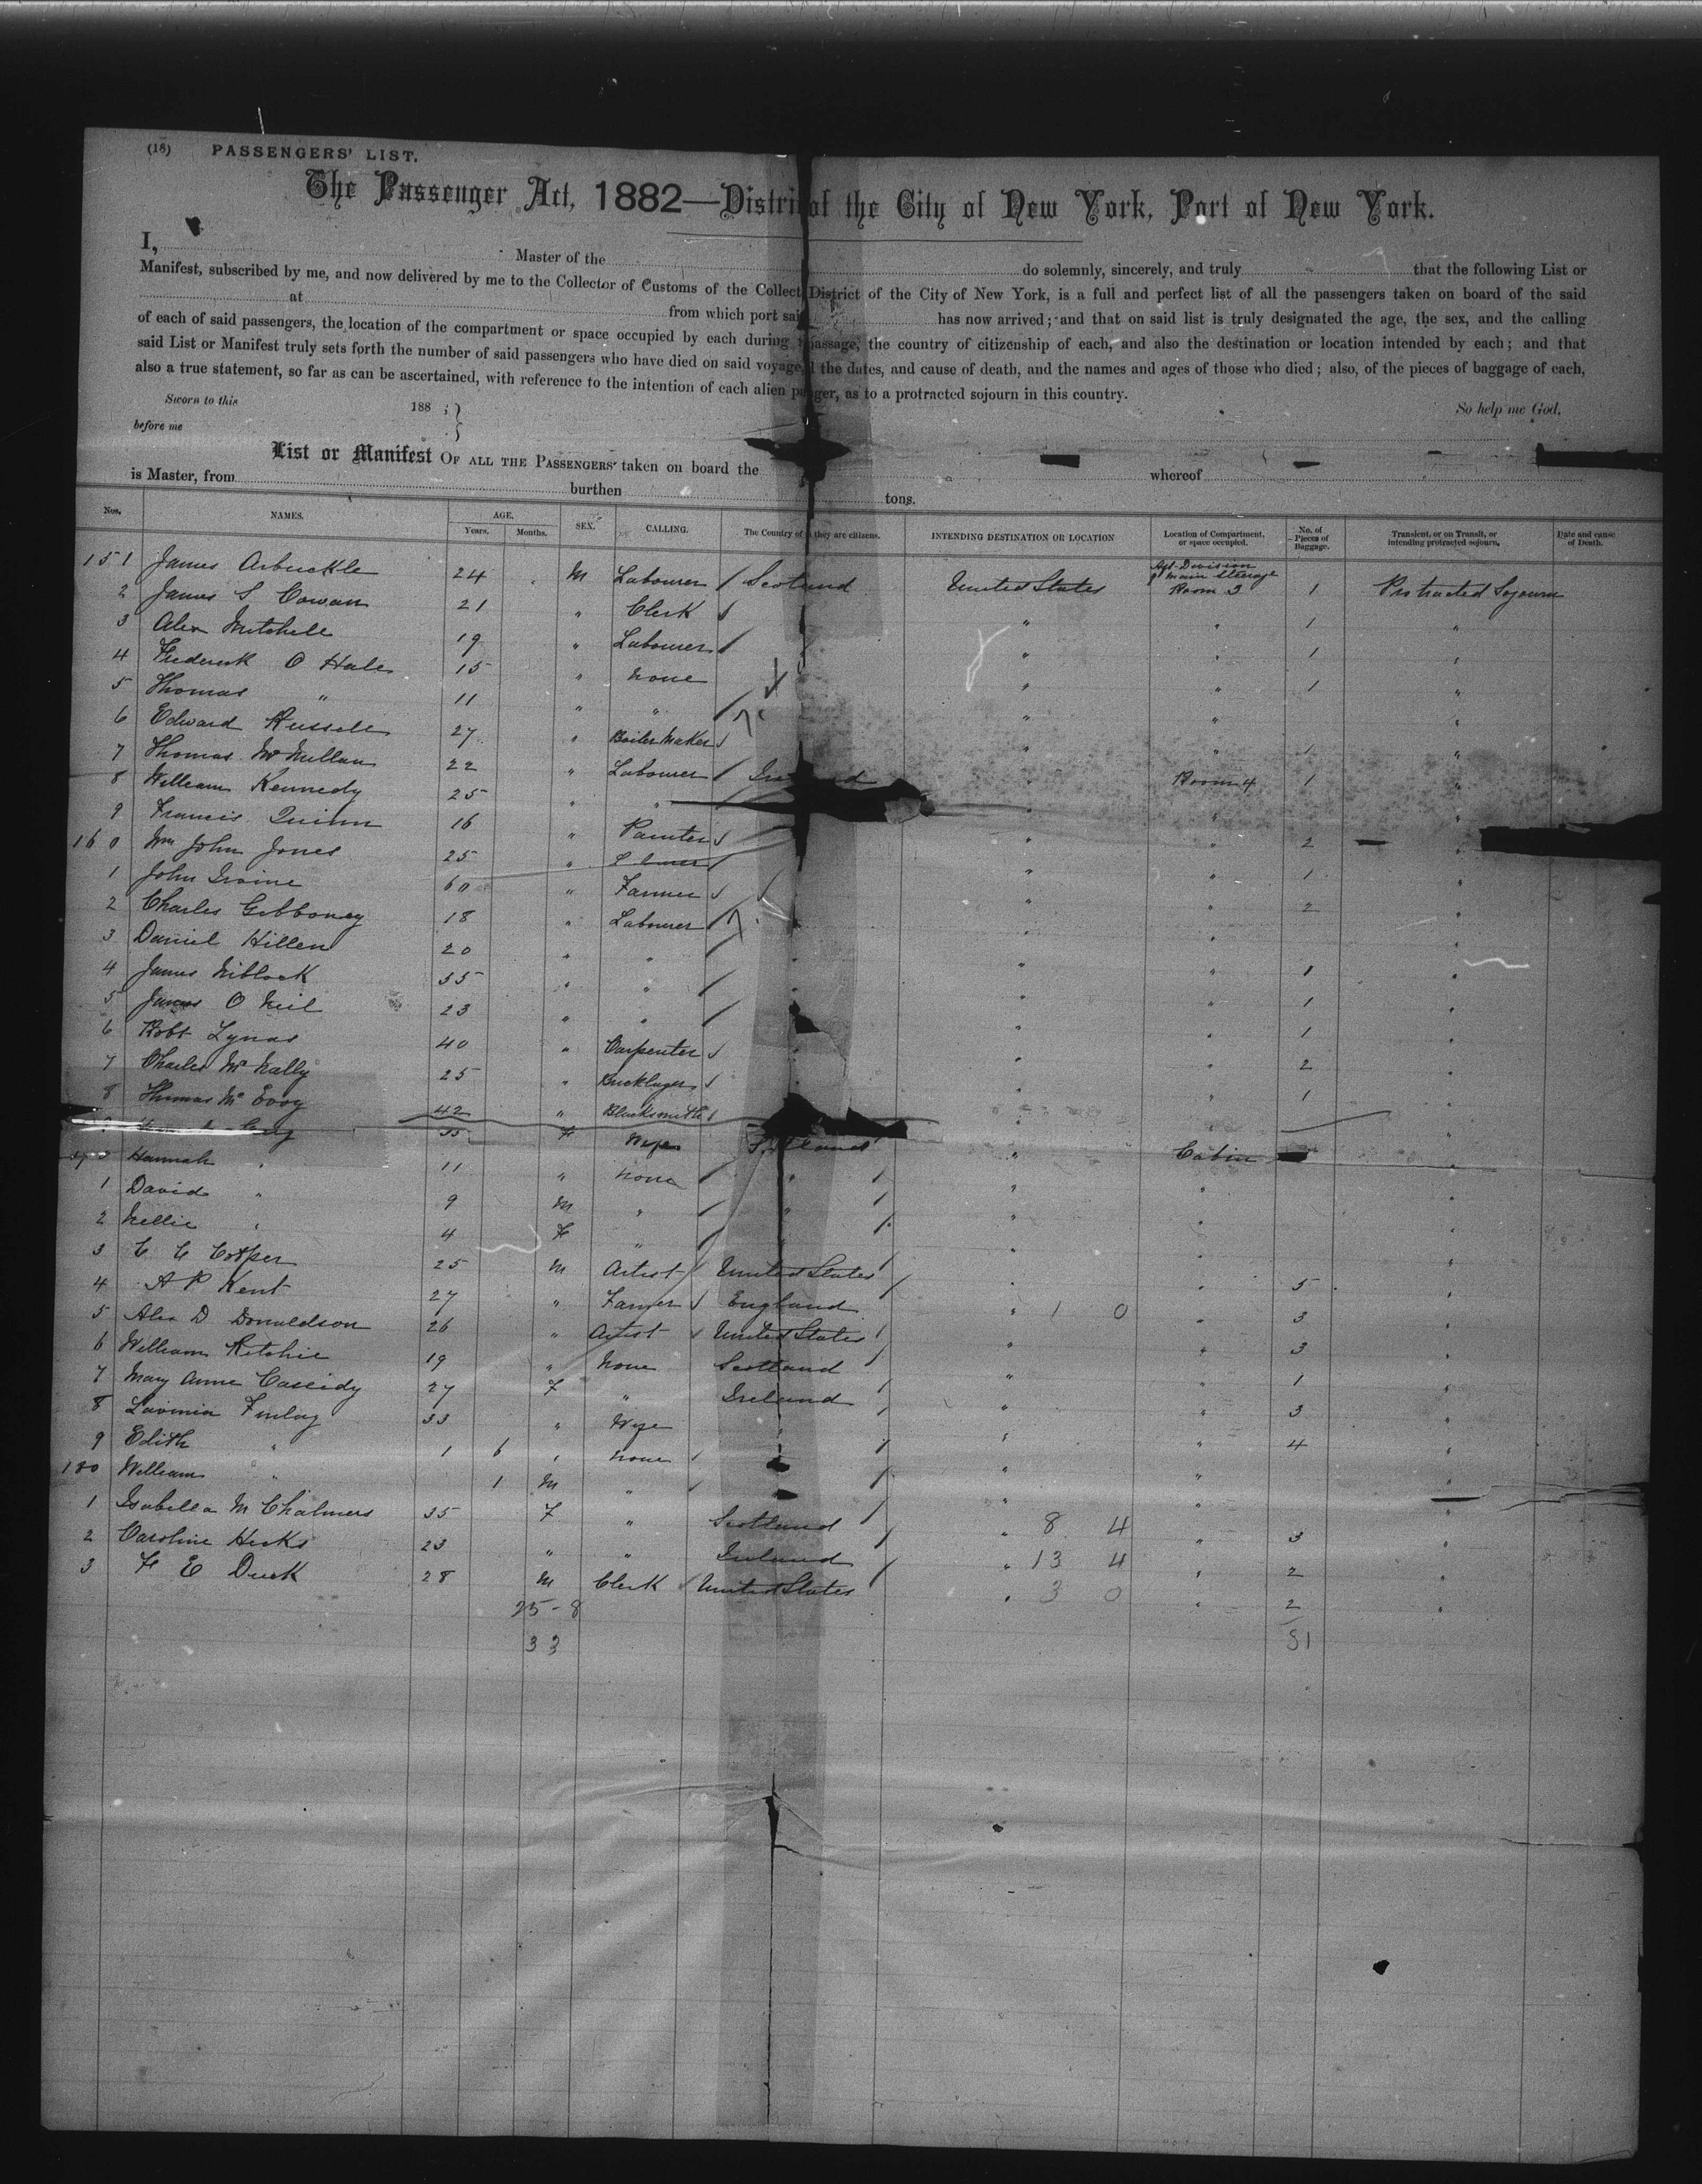 (18) PASSENGERS' LIST.
The Passenger Act, 1882—Distri of the City of New York, Port of New York.
I, Master of the do solemnly, sincerely, and truly that the following List or
Manifest, subscribed by me, and now delivered by me to the Collector of Customs of the Collect District of the City of New York, is a full and perfect list of all the passengers taken on board of the said
at from which port sai has now arrived; and that on said list is truly designated the age, the sex, and the calling
of each of said passengers, the location of the compartment or space occupied by each during passage, the country of citizenship of each, and also the destination or location intended by each; and that
said List or Manifest truly sets forth the number of said passengers who have died on said voyage, the dates, and cause of death, and the names and ages of those who died; also, of the pieces of baggage of each,
also a true statement, so far as can be ascertained, with reference to the intention of each alien p ger, as to a protracted sojourn in this country.
Sworn to this 188 ; } So help me God,
before me
List or Manifest OF ALL THE PASSENGERS taken on board the whereof
is Master, from burthen tons.
Nos. NAMES. AGE. Years. Months. SEX. CALLING. The Country of they are citizens. INTENDING DESTINATION OR LOCATION Location of Compartment, or space occupied. No. of Pieces of Baggage. Transient, or on Transit, or intending protracted sojourn. Date and cause of Death.
151 James Arbuckle 24 M Labourer Scotland United States Aft Division Main Steerage Room 3 1 Protracted Sojourn
2 James S Cowan 21 " Clerk " " 1 "
3 Alex Mitchell 19 " Labourer " " 1 "
4 Frederick O Hale 15 " None " " 1 "
5 Thomas " 11 " " " " "
6 Edward Russell 27 " Boiler Maker " " 1 "
7 Thomas McMullan 22 " Labourer " Room 4 1 "
8 William Kennedy 25 " " " " "
9 Francis Quinn 16 " Painter " " 2 "
160 Wm John Jones 25 " " " 1 "
1 John Irvine 60 " Farmer " " 2 "
2 Charles Gibboney 18 " Labourer " " "
3 Daniel Hillen 20 " " " " " 1 "
4 James Niblock 35 " " " " " 1 "
5 James O Neil 23 " " " " 1 "
6 Robt Lynas 40 " Carpenter " " " 2 "
7 Charles McNally 25 " Bricklayer " " " 1 "
8 Thomas McEvoy 42 " Blacksmith " " "
35 F Wife " Cabin "
Hannah " 11 " None " " " "
1 David " 9 M " " " " "
2 Nellie " 4 F " " " "
3 25 M Artist United States " " 5 "
4 A P Kent 27 " Farmer England " 1 0 " 3 "
5 Alex D Donaldson 26 " Artist United States " " 3 "
6 William Ritchie 19 " None Scotland " " 1 "
7 Mary Anne Cassidy 27 F " Ireland " " 3 "
8 Lavinia Finlay 33 " Wife " " " 4 "
9 Edith " 1 6 " None " " "
180 William " 1 M " " " "
1 Isabella M Chalmers 35 F " Scotland " 8 4 " 3 "
2 Caroline Hicks 23 " " Ireland " 13 4 " 2 "
3 F E Duck 28 M Clerk United States " 3 0 " 2 "
25-8
33 51